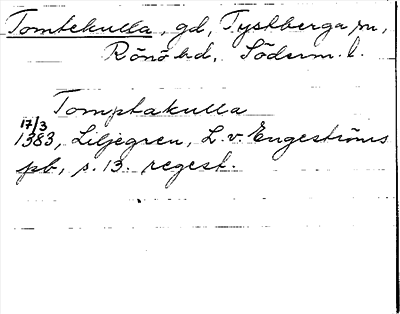 Tomtekulla, gd, Tystberga sn,
Rönö hd, Söderm. l.
Tomptakulla
17/3
1383, Liljegren, L. v. Engeströms
pb, s. 13. regest.